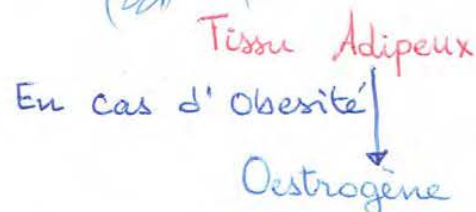 Tissu Adipeux
En cas d'Obesité
Oestrogène